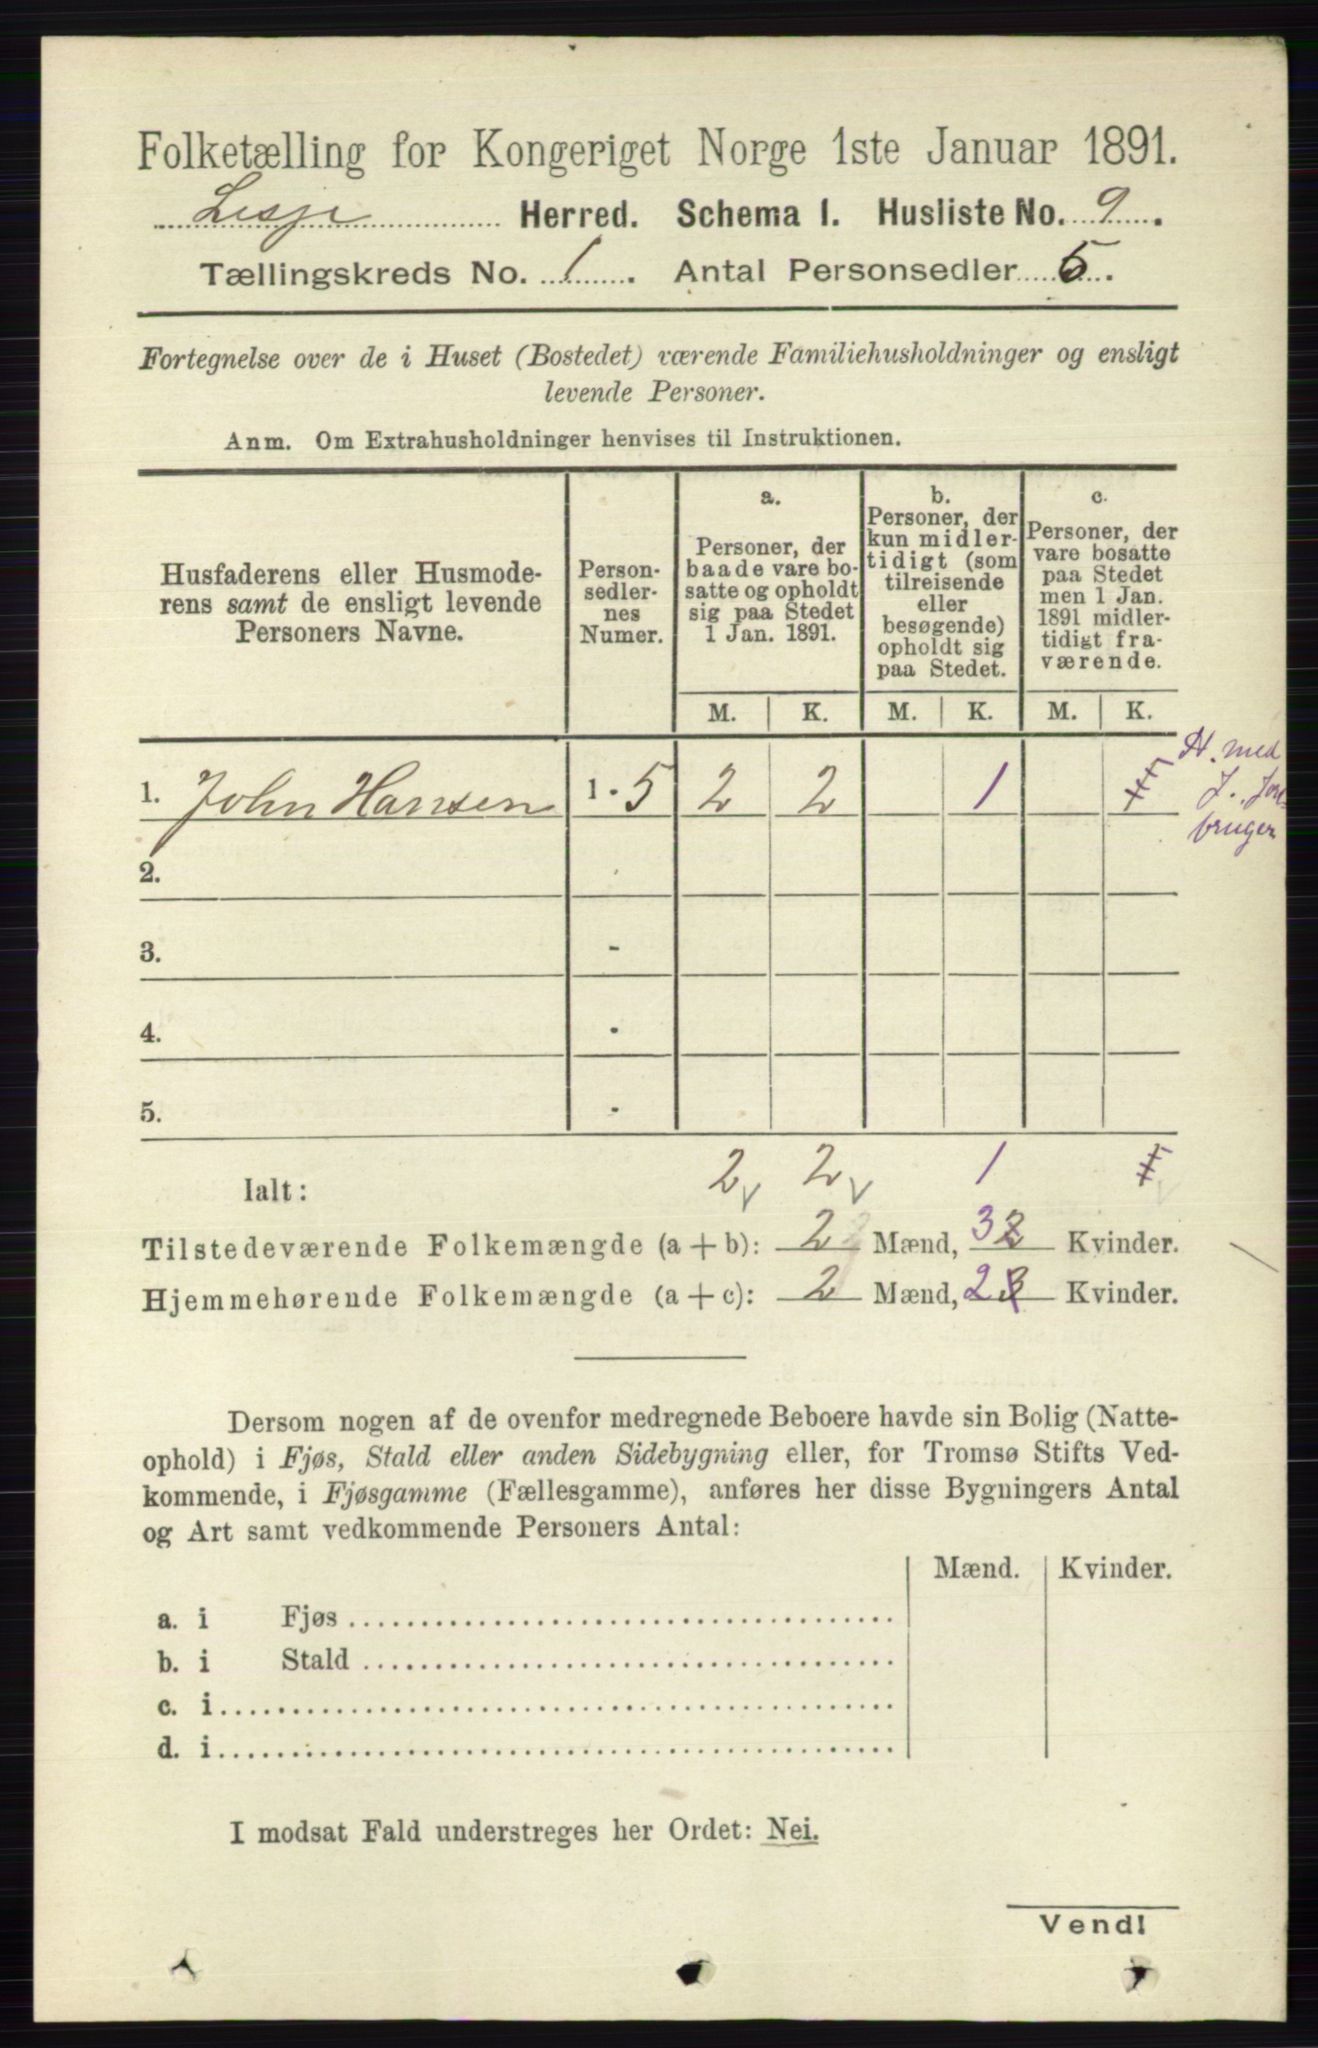 Folketælling for Kongeriget Norge 1ste Januar 1891.
Lesje Herred. Schema I. Husliste No. 9.
Tællingskreds No. 1. Antal Personsedler 5.
Fortegnelse over de i Huset (Bostedet) værende Familiehusholdninger og ensligt
levende Personer.
Anm. Om Extrahusholdninger henvises til Instruktionen.
Husfaderens eller Husmode-
rens samt de ensligt levende
Personers Navne.
Person-
sedler-
nes
Numer.
a.
Personer, der
baade vare bo-
satte og opholdt
sig paa Stedet
1 Jan. 1891.
b.
Personer, der
kun midler-
tidigt (som
tilreisende
eller
besøgende)
opholdt sig
paa Stedet.
c.
Personer, der
vare bosatte
paa Stedet
men 1 Jan.
1891 midler-
tidigt fra-
værende.
M. K. M. K. M. K.
1. John Hansen 1 - 5 2 2 1 1
H. med
J. Jord
bruger
2.
3. -
4. -
5. -
Ialt: 2 2 1 1
Tilstedeværende Folkemængde (a + b): 2 Mænd, 32 Kvinder.
Hjemmehørende Folkemængde (a + c): 2 Mænd, 23 Kvinder.
Dersom nogen af de ovenfor medregnede Beboere havde sin Bolig (Natte-
ophold) i Fjøs, Stald eller anden Sidebygning eller, for Tromsø Stifts Ved-
kommende, i Fjøsgamme (Fællesgamme), anføres her disse Bygningers Antal
og Art samt vedkommende Personers Antal:
Mænd. Kvinder.
a. i Fjøs
b. i Stald
c. i
d. i
I modsat Fald understreges her Ordet: Nei.
Vend!